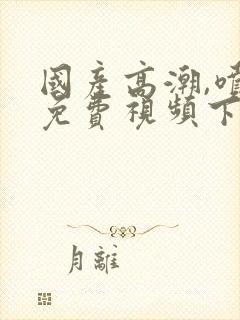 國產高潮,噴
免費視頻下
月離